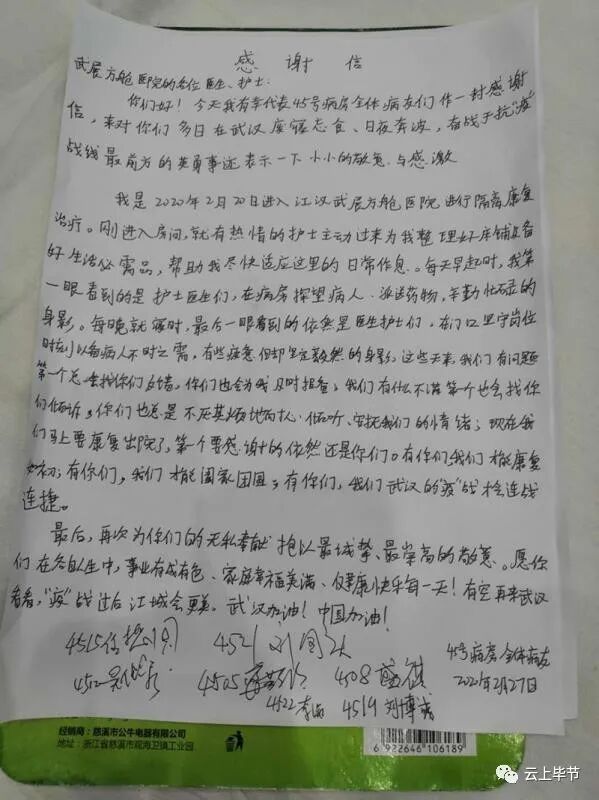 感谢信
武展方舱医院的各位医生、护士:
你们好!今天我有幸代表45号病房全体病友们作一封感谢
信,来对你们多日在武汉废寝忘食、日夜奔波,奋战于抗"疫"
战线最前方的英勇事迹表示一下小小的敬意与感激
我是2020年2月20日进入江汉武展方舱医院进行隔离康复
治疗。刚进入房间,就有热情的护士主动过来为我整理好床铺及备
好生活必需品,帮助我尽快适应这里的日常作息。每天早起时,我第
一眼看到的是护士医生们,在病房探望病人、派送药物,辛勤忙碌的
身影。每晚就寝时,最后一眼看到的依然是医生护士们,在门口坚守岗位
时刻以备病人不时之需,有些疲惫但却坚定毅然的身影,这些天来,我们有问题
第一个总会找你们反馈,你们也会为我及时担查;我们有什么不满第一个也会找你
们倾诉,你们也总是不厌其烦地耐心倾听、安抚我们的情绪;现在我
们马上要康复出院了,第一个要感谢的依然还是你们。有你们,我们才能康复
如初;有你们,我们才能阖家团圆;有你们,我们武汉的"疫"战才会连战
连捷。
最后,再次为你们的无私奉献抱以最诚挚、最崇高的敬意。愿你
们在各自人生中,事业有成有色、家庭幸福美满、健康快乐每一天!有空再来武汉
看看,"疫"战过后江城会更美。武汉加油!中国加油!
4515 4521
4512 4505 4508
4522 李 4519 刘博
45号病房全体病友
2020年2月27日
经销商:慈溪市公牛电器有限公司
地址:浙江省慈溪市观海卫镇工业园
6 922646 106189
云上毕节